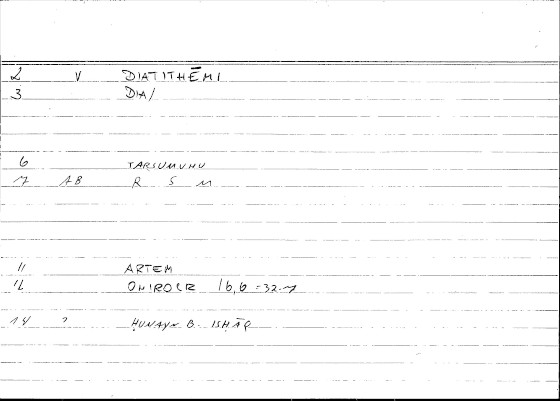 2 V DIATITHĒMI
3 DIA/
6 TARSUMUHU
7 AB R S M
11 ARTEM
12 ONIROCR 16,6 = 32.7
14 ? ḤUNAYN B. ISḤĀQ